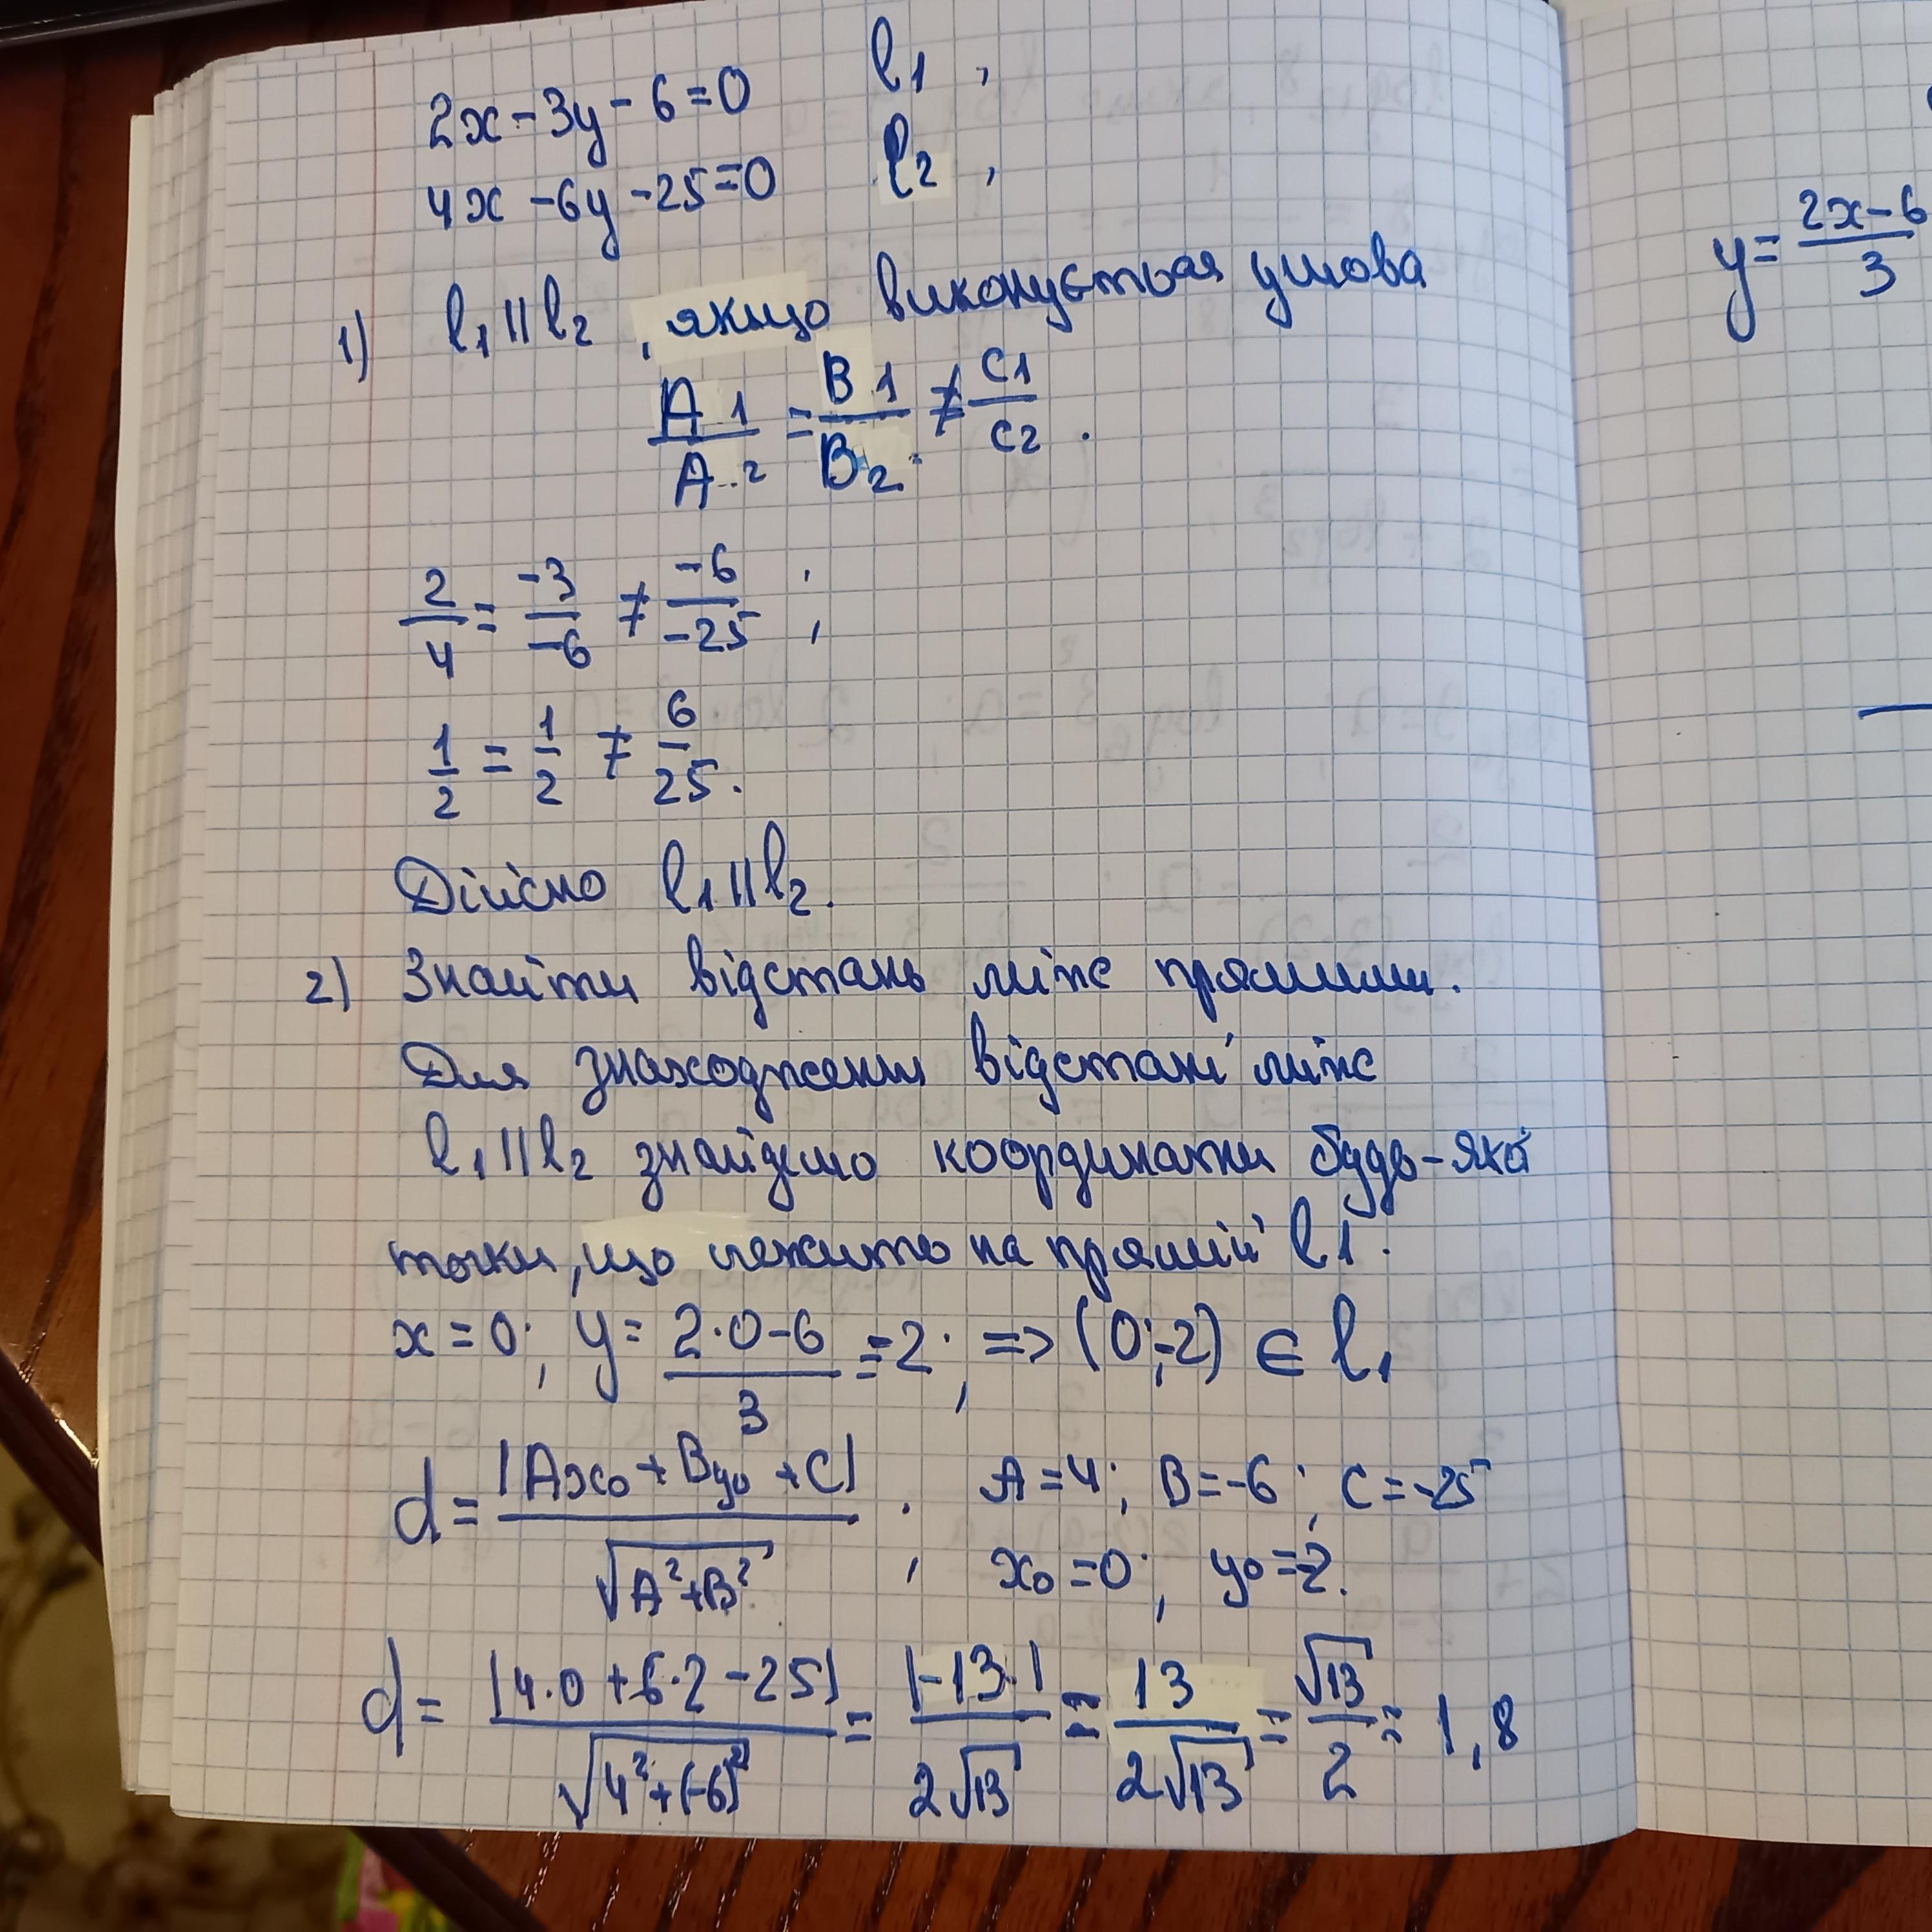 2x - 3y - 6 = 0   l1 ,
4x - 6y - 25 = 0   l2 ,
1) l1 || l2 , якщо виконується умова
A1/A2 = B1/B2 ≠ C1/C2 .
2/4 = -3/-6 ≠ -6/-25 ;
1/2 = 1/2 ≠ 6/25.
Дійсно l1 || l2.
2) Знайти відстань між прямими.
Для знаходження відстані між
l1 || l2 знайдемо координати будь-якої
точки, що лежить на прямій l1.
x = 0; y = (2·0-6)/3 = -2; => (0;-2) ∈ l1
d = |Ax0 + By0 + C|/√(A²+B²) ; A = 4; B = -6; C = -25
x0 = 0; y0 = -2.
d = |4·0 + 6·2 - 25|/√(4²+(-6)²) = |-13|/2√13 = 13/2√13 = √13/2 ≈ 1,8
y = (2x-6)/3